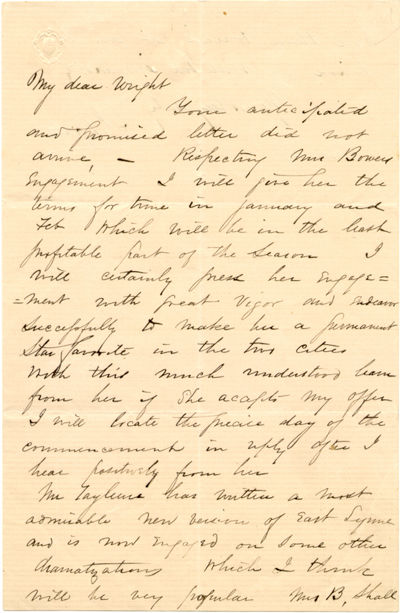 My dear Wright
Your anticipated
and promised letter did not
arrive, – Respecting Mrs Bowers
Engagement I will give her the
terms for time in January and
Feb which will be in the least
profitable part of the Season I
will certainly press her Engage=
=ment with great Vigor and endeavor
Successfully to make her a permanent
Star favorite in the two cities
With this much understood learn
from her if She accepts my offer
I will locate the precise day of the
commencement in reply after I
hear positively from her
Mr Tayleure has written a most
admirable new version of East Lynne
and is now Engaged on Some other
dramatizations which I think
will be very popular Mrs B. Shall